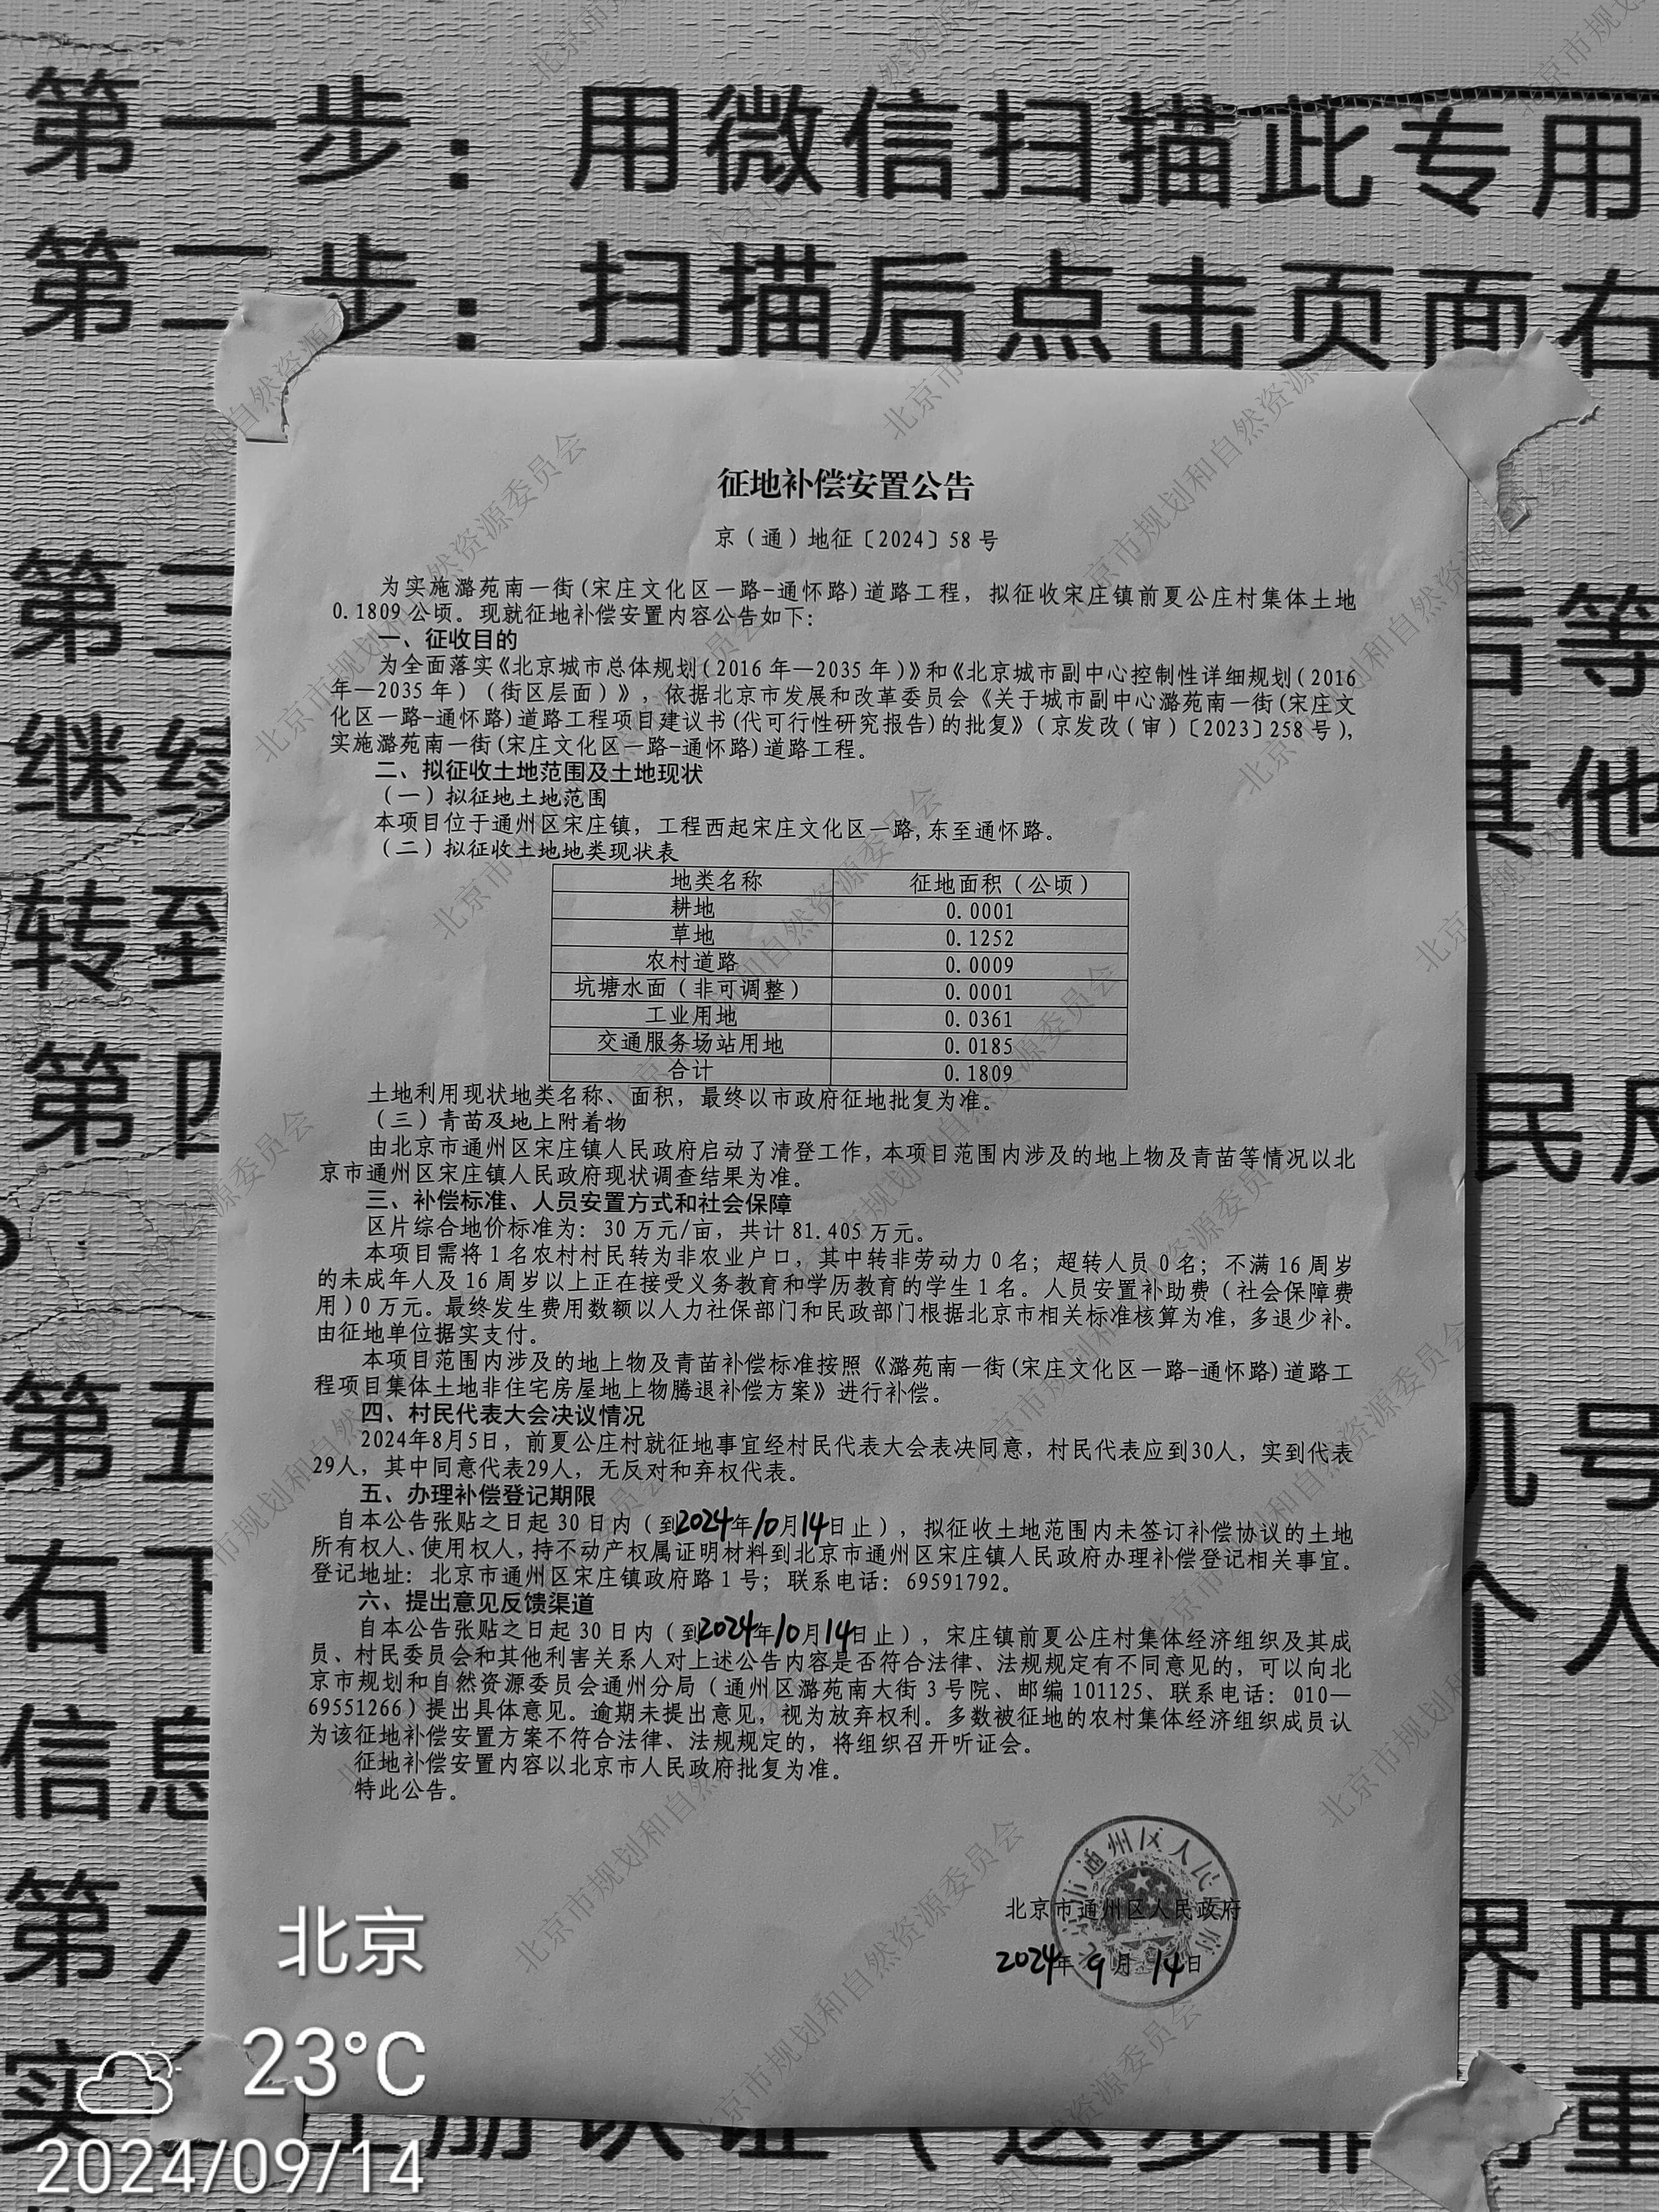 第一步：用微信扫描此专用
第二步：扫描后点击页面右
征地补偿安置公告
京（通）地征〔2024〕58号
为实施潞苑南一街(宋庄文化区一路-通怀路)道路工程，拟征收宋庄镇前夏公庄村集体土地
0.1809公顷。现就征地补偿安置内容公告如下：
一、征收目的
为全面落实《北京城市总体规划(2016年—2035年)》和《北京城市副中心控制性详细规划(2016
年—2035年)（街区层面）》，依据北京市发展和改革委员会《关于城市副中心潞苑南一街(宋庄文
化区一路-通怀路)道路工程项目建议书(代可行性研究报告)的批复》(京发改(审)〔2023〕258号)，
实施潞苑南一街(宋庄文化区一路-通怀路)道路工程。
二、拟征收土地范围及土地现状
（一）拟征地土地范围
本项目位于通州区宋庄镇，工程西起宋庄文化区一路,东至通怀路。
（二）拟征收土地地类现状表
地类名称 征地面积（公顷）
耕地 0.0001
草地 0.1252
农村道路 0.0009
坑塘水面（非可调整） 0.0001
工业用地 0.0361
交通服务场站用地 0.0185
合计 0.1809
土地利用现状地类名称、面积，最终以市政府征地批复为准。
（三）青苗及地上附着物
由北京市通州区宋庄镇人民政府启动了清登工作，本项目范围内涉及的地上物及青苗等情况以北
京市通州区宋庄镇人民政府现状调查结果为准。
三、补偿标准、人员安置方式和社会保障
区片综合地价标准为：30万元/亩，共计81.405万元。
本项目需将1名农村村民转为非农业户口，其中转非劳动力0名；超转人员0名；不满16周岁
的未成年人及16周岁以上正在接受义务教育和学历教育的学生1名。人员安置补助费（社会保障费
用)0万元。最终发生费用数额以人力社保部门和民政部门根据北京市相关标准核算为准，多退少补。
由征地单位据实支付。
本项目范围内涉及的地上物及青苗补偿标准按照《潞苑南一街(宋庄文化区一路-通怀路)道路工
程项目集体土地非住宅房屋地上物腾退补偿方案》进行补偿。
四、村民代表大会决议情况
2024年8月5日，前夏公庄村就征地事宜经村民代表大会表决同意，村民代表应到30人，实到代表
29人，其中同意代表29人，无反对和弃权代表。
五、办理补偿登记期限
自本公告张贴之日起30日内（到2024年10月14日止），拟征收土地范围内未签订补偿协议的土地
所有权人、使用权人,持不动产权属证明材料到北京市通州区宋庄镇人民政府办理补偿登记相关事宜。
登记地址：北京市通州区宋庄镇政府路1号；联系电话：69591792。
六、提出意见反馈渠道
自本公告张贴之日起30日内（到2024年10月14日止），宋庄镇前夏公庄村集体经济组织及其成
员、村民委员会和其他利害关系人对上述公告内容是否符合法律、法规规定有不同意见的，可以向北
京市规划和自然资源委员会通州分局（通州区潞苑南大街3号院、邮编101125、联系电话：010—
69551266)提出具体意见。逾期未提出意见，视为放弃权利。多数被征地的农村集体经济组织成员认
为该征地补偿安置方案不符合法律、法规规定的，将组织召开听证会。
征地补偿安置内容以北京市人民政府批复为准。
特此公告。
北京市通州区人民政府
2024年9月14日
第三
继续
转至
第四
第五
右下
信息
第六
等
其他
民
机号
个人
界面
重
北京
23°C
2024/09/14
北京市规划和自然资源委员会